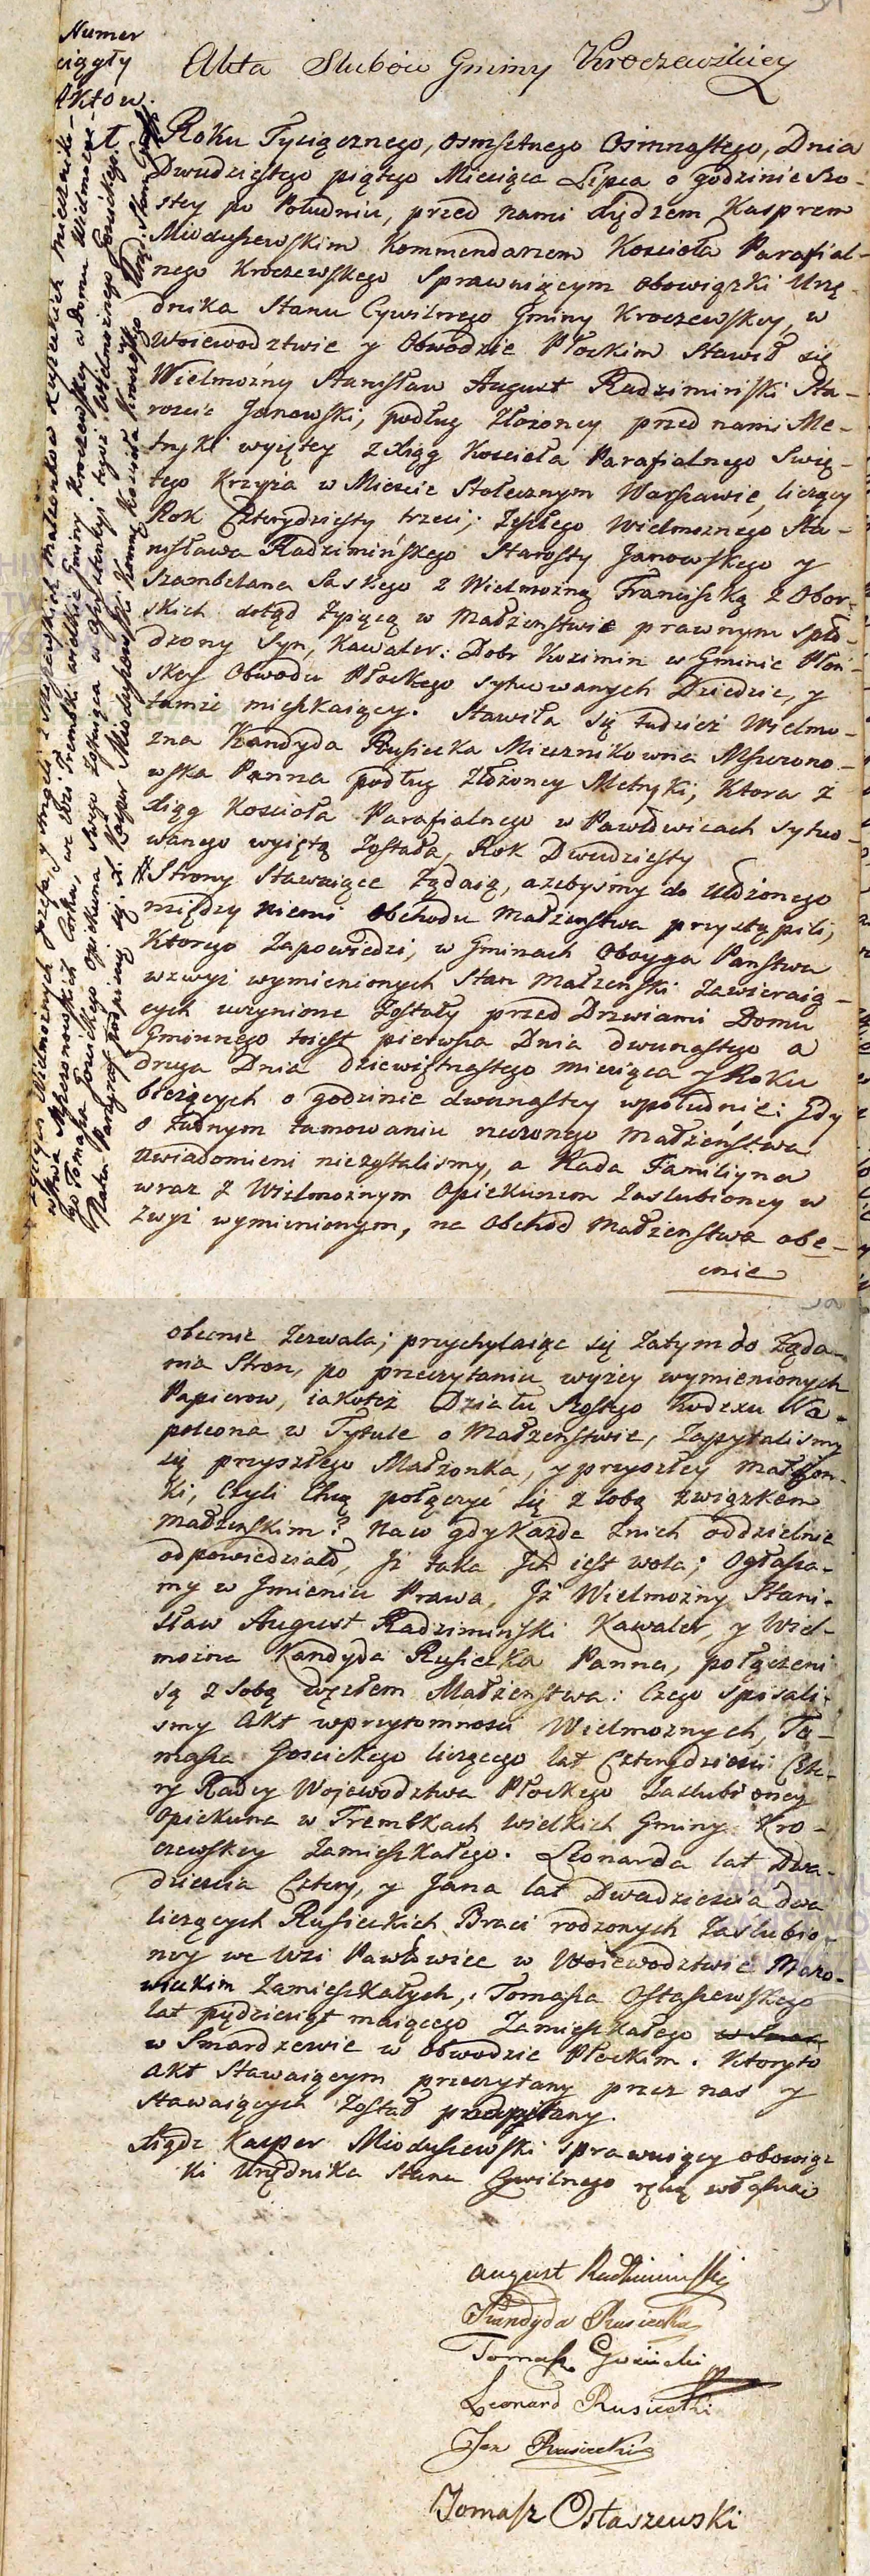 Numer
ciągły
Aktow.
Akta Slubow Gminy Kroczewskiey
1.
Roku Tysiącznego, osmsetnego Osimnastego, Dnia
Dwudziestego piątego Miesiąca Lipca o godzinie szo-
stey po Południu, przed nami Xiędzem Kasprem
Mioduszewskim Kommendarzem Kościoła Parafial-
nego Kroczewskego sprawuiącym obowiązki Urzę-
dnika Stanu Cywilnego Gminy Kroczewskey, w
Woiewodztwie y Obwodzie Płockim Stawił się
Wielmożny Stanisław August Radzimiński Sta-
roscic Janowski, podług złożoney przed nami Me-
tryki wyiętey z Xiąg Kościoła Parafialnego Swię-
tego Krzyża w Miescie Stołecznym Warszawie, liczący
Rok Czterydziesty trzeci; Zeszłego Wielmożnego Sta-
nisława Radzimińskego Starosty Janowskego y
Szambelana Saskego z Wielmożną Franciszką z Obor-
skich dotąd żyiącą w Małżenstwie prawnym spło-
dzony Syn, Kawaler: Dobr Kuzimin w Gminie Płoń-
skey Obwodu Płockego sytuowanych Dziedzic, y
tamże mieszkaiący. Stawiła się tudzież Wielmo-
żna Kandyda Rusiecka Miecznikowna Mszczono-
wska Panna podług złożoney Metryki, Ktora z
Xiąg Kościoła Parafialnego w Pawłowicach sytuo-
wanego wyiętą została, Rok Dwudziesty
# Strony Stawaiące żądaią, ażebyśmy do ułożonego
między niemi obchodu małżenstwa przystąpili,
Ktorego Zapowiedzi, w Gminach Oboyga Panstwa
wzwyż wymienionych Stan Małżenski zawieraią-
cych uczynione zostały przed Drzwiami Domu
Gminnego to iest pierwsza Dnia dwunastego a
druga Dnia dziewiętnastego miesiąca y Roku
bieżących o godzinie dwunastey wpołudnie: Gdy
o żadnym tamowaniu rzeczonego małżeństwa
uwiadomieni niezostalismy, a Rada Familiyna
wraz z Wielmożnym Opiekunem Zaslubioney w
zwyż wymienionym, na Obchod Małżenstwa obe-
cnie
# żyiących Wielmożnych Jozefa y Anieli z Małżonkow Rusieckich Miecznikо-
wstwa Mszczonowskich Corka, we Wsi Trembki wielkie Gminy Kroczewskey w Domu Wielmożne-
go Tomasza Gosickego Opiekuna swego zostaiąca w assystencyi tegoż Wielmożnego Gosickego.
X. Kasper Mioduszewski Komm: Kościoła
obecnie zezwala; przychylaiąc się zatym do żąda-
nia Stron, po przeczytaniu wyżey wymienionych
Papierow, iakoteż Działu szostego Kodexu Na-
poleona w Tytule o Małżenstwie, Zapytalismy
się przyszłego Małżonka, y przyszłey Małżon-
ki, czyli chcą połączyć się z sobą związkiem
małżenskim? na co gdy każde z nich oddzielnie
odpowiedziało, Jż taka Jch iest wola; Ogłasza-
my w Jmieniu Prawa, Jż Wielmożny Stani-
sław August Radzimiński Kawaler, y Wiel-
można Kandyda Rusiecka Panna, połączeni
są z sobą węzłem Małżenstwa: Czego spisali-
smy Akt wprzytomnosci Wielmożnych, To-
masza Gosickego liczącego lat Czterydziesci Czte-
ry Radcy Woiewodztwa Płockego Zaslubioney
Opiekuna w Trembkach wielkich Gminy Kro-
czewskey zamieszkałego. Leonarda lat Dwa-
dziescia Cztery, y Jana lat Dwadziescia dwa
liczących Rusieckich Braci rodzonych Zaslubio-
ney we Wsi Pawłowice w Woiewodztwie Mazo-
wieckim zamieszkałych, Tomasza Ostaszewskego
lat pędziesiąt maiącego zamieszkałego
w Smardzewie w Obwodzie Płockim. Ktoryto
Akt Stawaiącym przeczytany przez nas y
Stawaiących został podpisany.
Xiądz Kasper Mioduszewski sprawuiący obowiąz-
ki Urzędnika Stanu Cywilnego ręką własną
August Radzimiński
Kandyda Rusiecka
Tomasz Gosicki
Leonard Rusiecki
Jan Rusiecki
Tomasz Ostaszewski